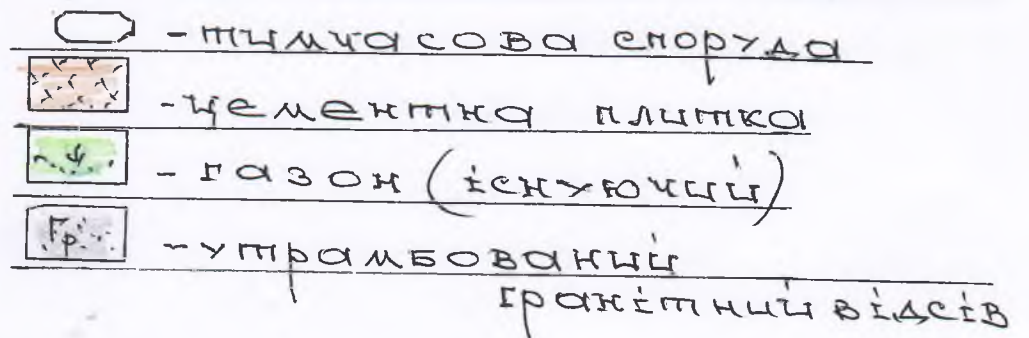 - тимчасова споруда
- цементна плитка
- газон (існуючий)
Гр - утрамбований
гранітний відсів